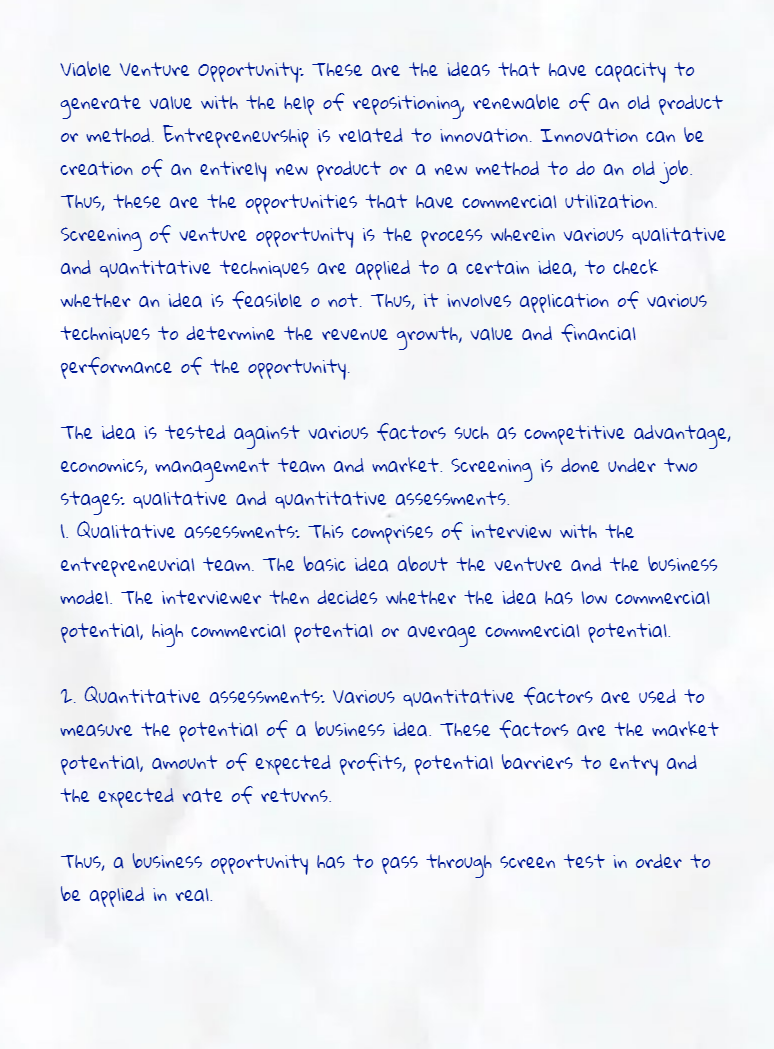 Viable Venture Opportunity: These are the ideas that have capacity to
generate value with the help of repositioning, renewable of an old product
or method. Entrepreneurship is related to innovation. Innovation can be
creation of an entirely new product or a new method to do an old job.
Thus, these are the opportunities that have commercial utilization.
Screening of venture opportunity is the process wherein various qualitative
and quantitative techniques are applied to a certain idea, to check
whether an idea is feasible o not. Thus, it involves application of various
techniques to determine the revenue growth, value and financial
performance of the opportunity.
The idea is tested against various factors such as competitive advantage,
economics, management team and market. Screening is done under two
stages: qualitative and quantitative assessments.
1. Qualitative assessments: This comprises of interview with the
entrepreneurial team. The basic idea about the venture and the business
model. The interviewer then decides whether the idea has low commercial
potential, high commercial potential or average commercial potential.
2. Quantitative assessments: Various quantitative factors are used to
measure the potential of a business idea. These factors are the market
potential, amount of expected profits, potential barriers to entry and
the expected rate of returns.
Thus, a business opportunity has to pass through screen test in order to
be applied in real.